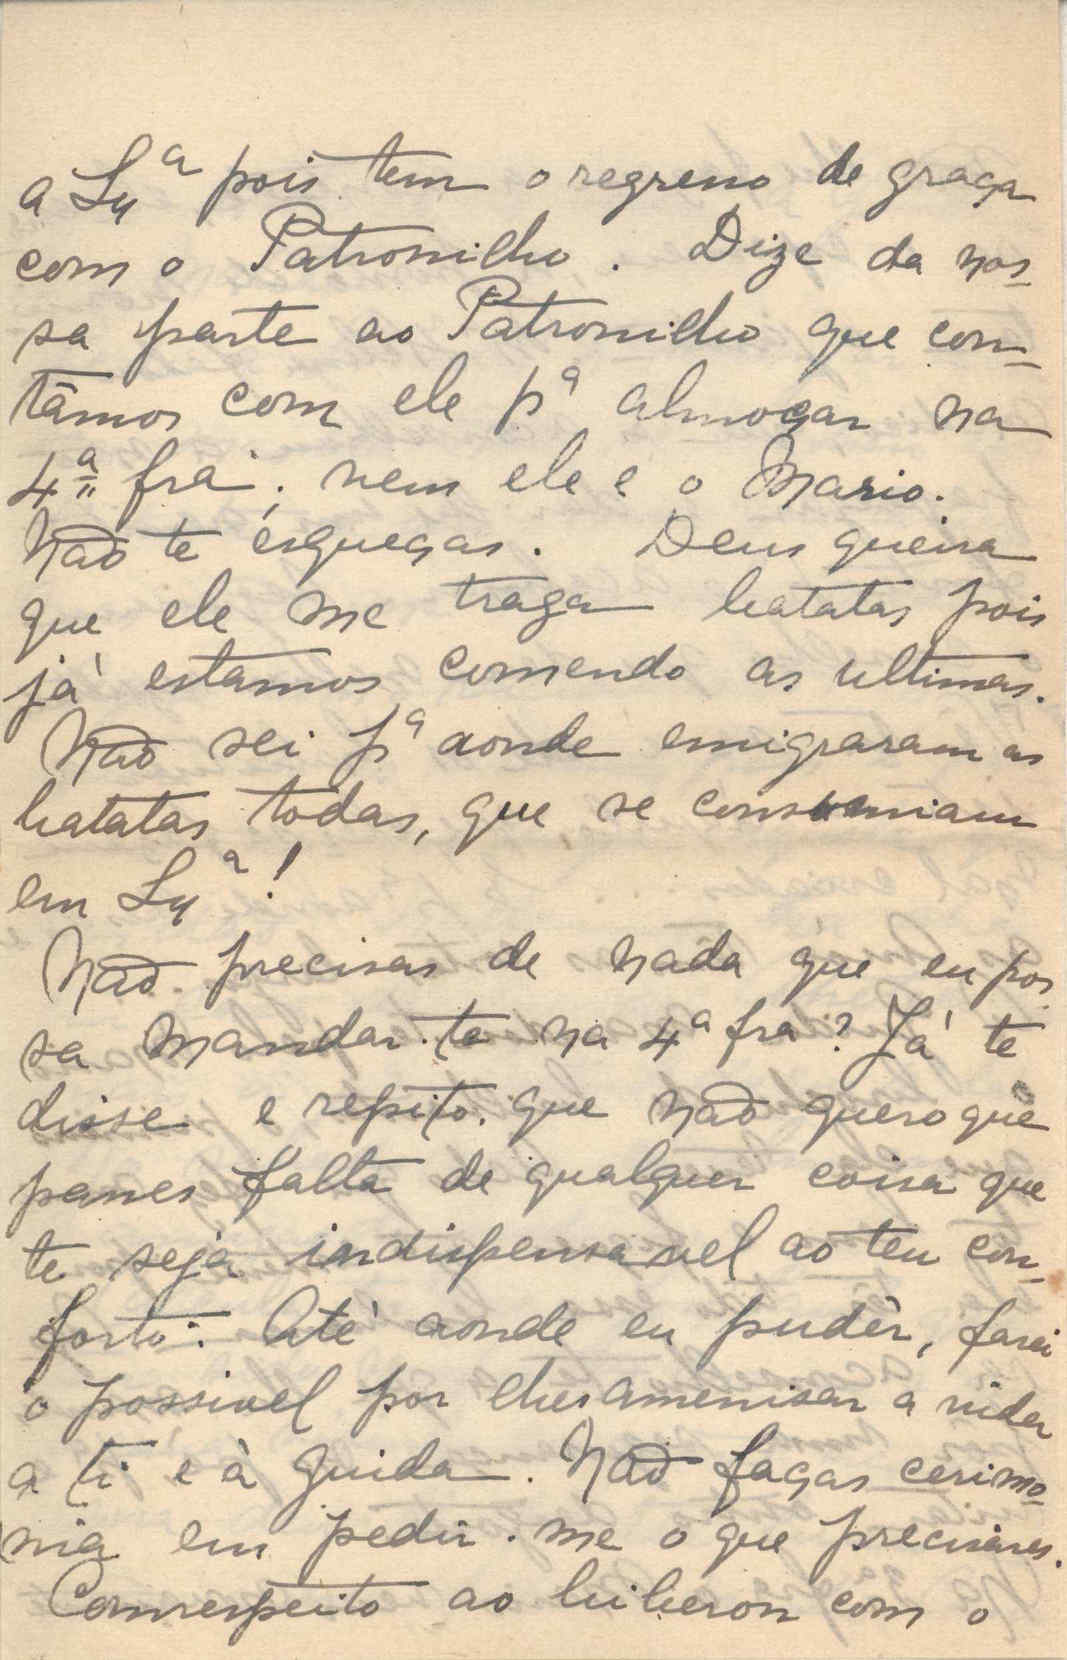 a Lxª pois tem o regresso de graça
com o Patronilho. Dize da nos-
sa parte ao Patronilho que con-
tâmos com ele pª almoçar na
4ª fra; vem ele e o Mario.
Não te esqueças. Deus queira
que ele me traga batatas pois
já estamos comendo as ultimas.
Não sei pª aonde emigraram as
batatas todas, que se consumiam
em Lxª!
Não precisas de nada que eu pos
sa mandar-te na 4ª fra? Já te
disse e repito, que não quero que
passes falta de qualquer coisa que
te seja indispensavel ao teu con-
forto. Até aonde eu pudêr, farei
o possivel por lhes amenisar a vida
a ti e à Guida. Não faças cerimo-
nia em pedir-me o que precisares.
Com respeito ao biberon com o